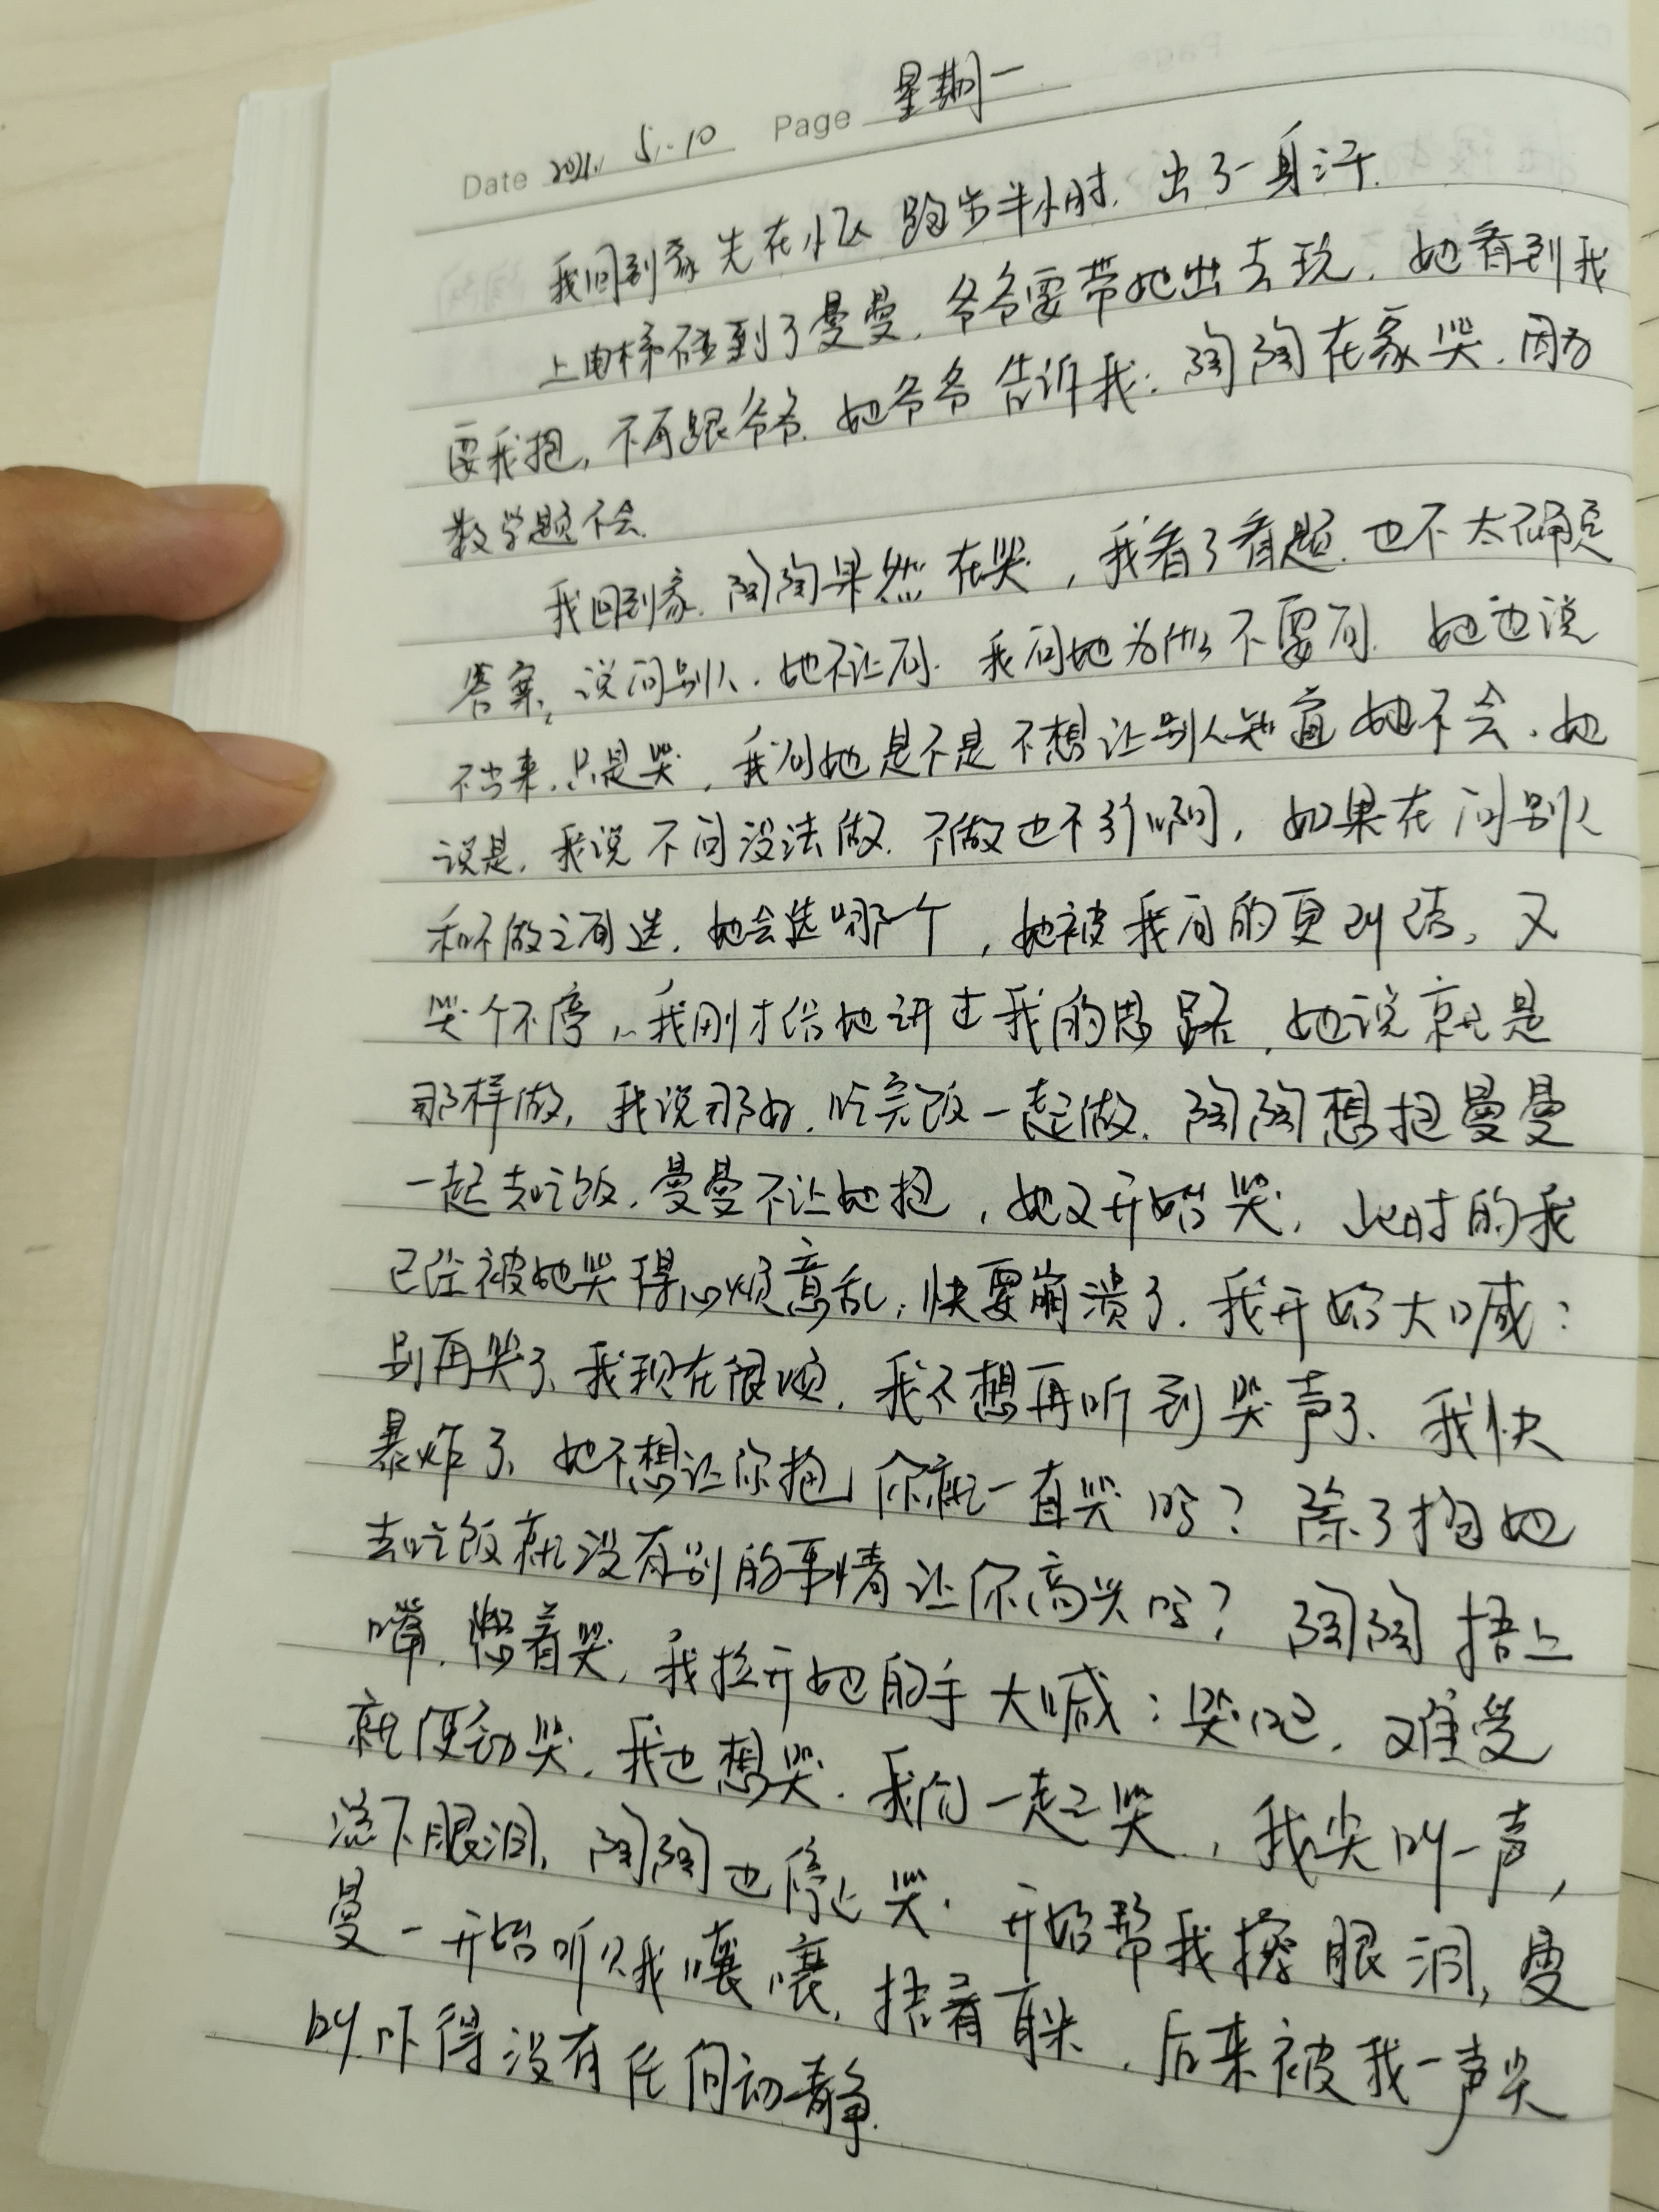 Date 2021. 5.10 Page 星期一
我回到家先在小区跑步半小时.出了一身汗.
上电梯碰到了曼曼.爷爷要带她出去玩.她看到我
要我抱,不再跟爷爷.她爷爷告诉我:陶陶在家哭.因为
数学题不会.
我回到家.陶陶果然在哭,我看了看题.也不太确定
答案,说问别人.她不让问.我问她为什么不要问.她也说
不出来.只是哭,我问她是不是不想让别人知道她不会.她
说是.我说不问没法做.不做也不行啊,如果在问别人
和不做之间选.她会选哪个,她被我问的更纠结,又
哭个不停,我刚才给她讲过我的思路,她说就是
那样做,我说那好.吃完饭一起做.陶陶想抱曼曼
一起去吃饭.曼曼不让她抱,她又开始哭,此时的我
已经被她哭得心烦意乱,快要崩溃了.我开始大喊:
别再哭了、我现在很烦.我不想再听到哭声了、我快
暴炸了、她不想让你抱你就一直哭吗?除了抱她
去吃饭就没有别的事情让你高兴吗?陶陶捂上
嘴.憋着哭,我拉开她的手大喊:哭吧.难受
就使劲哭.我也想哭.我们一起哭,我尖叫一声,
流下眼泪,陶陶也停止哭.开始帮我擦眼泪,曼
曼一开始听见我嚷嚷,捂着耳朵,后来被我一声尖
叫吓得没有任何动静.